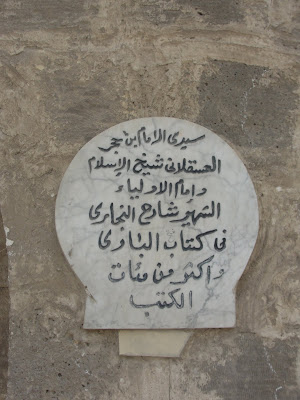 سيدى الإمام ابن حجر
العسقلانى شيخ الإسلام
وإمام الأولياء
الشهير شارح البخارى
فى كتاب الباوى
وأكثر من مئات
الكتب